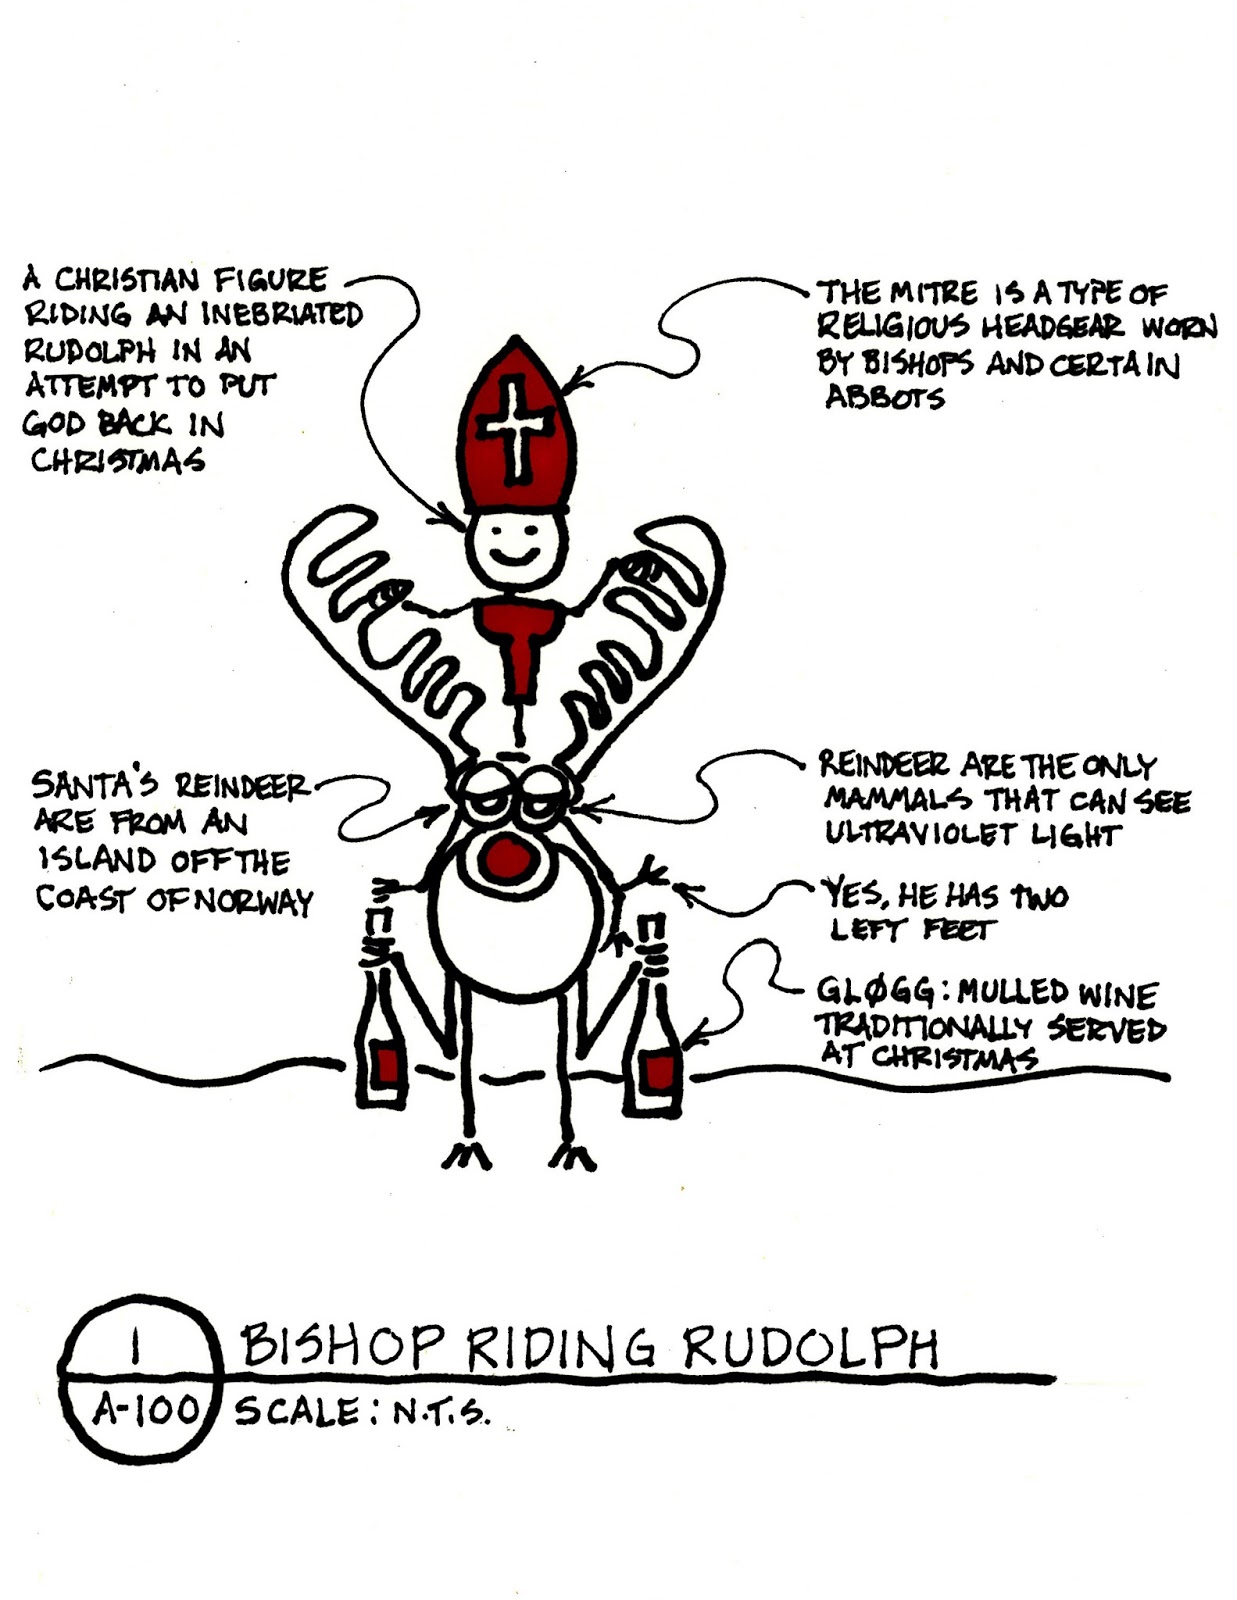 A CHRISTIAN FIGURE
RIDING AN INEBRIATED
RUDOLPH IN AN
ATTEMPT TO PUT
GOD BACK IN
CHRISTMAS
THE MITRE IS A TYPE OF
RELIGIOUS HEADGEAR WORN
BY BISHOPS AND CERTAIN
ABBOTS
SANTA'S REINDEER
ARE FROM AN
ISLAND OFF THE
COAST OF NORWAY
REINDEER ARE THE ONLY
MAMMALS THAT CAN SEE
ULTRAVIOLET LIGHT
YES, HE HAS TWO
LEFT FEET
GLØGG: MULLED WINE
TRADITIONALLY SERVED
AT CHRISTMAS
1
BISHOP RIDING RUDOLPH
A-100
SCALE: N.T.S.